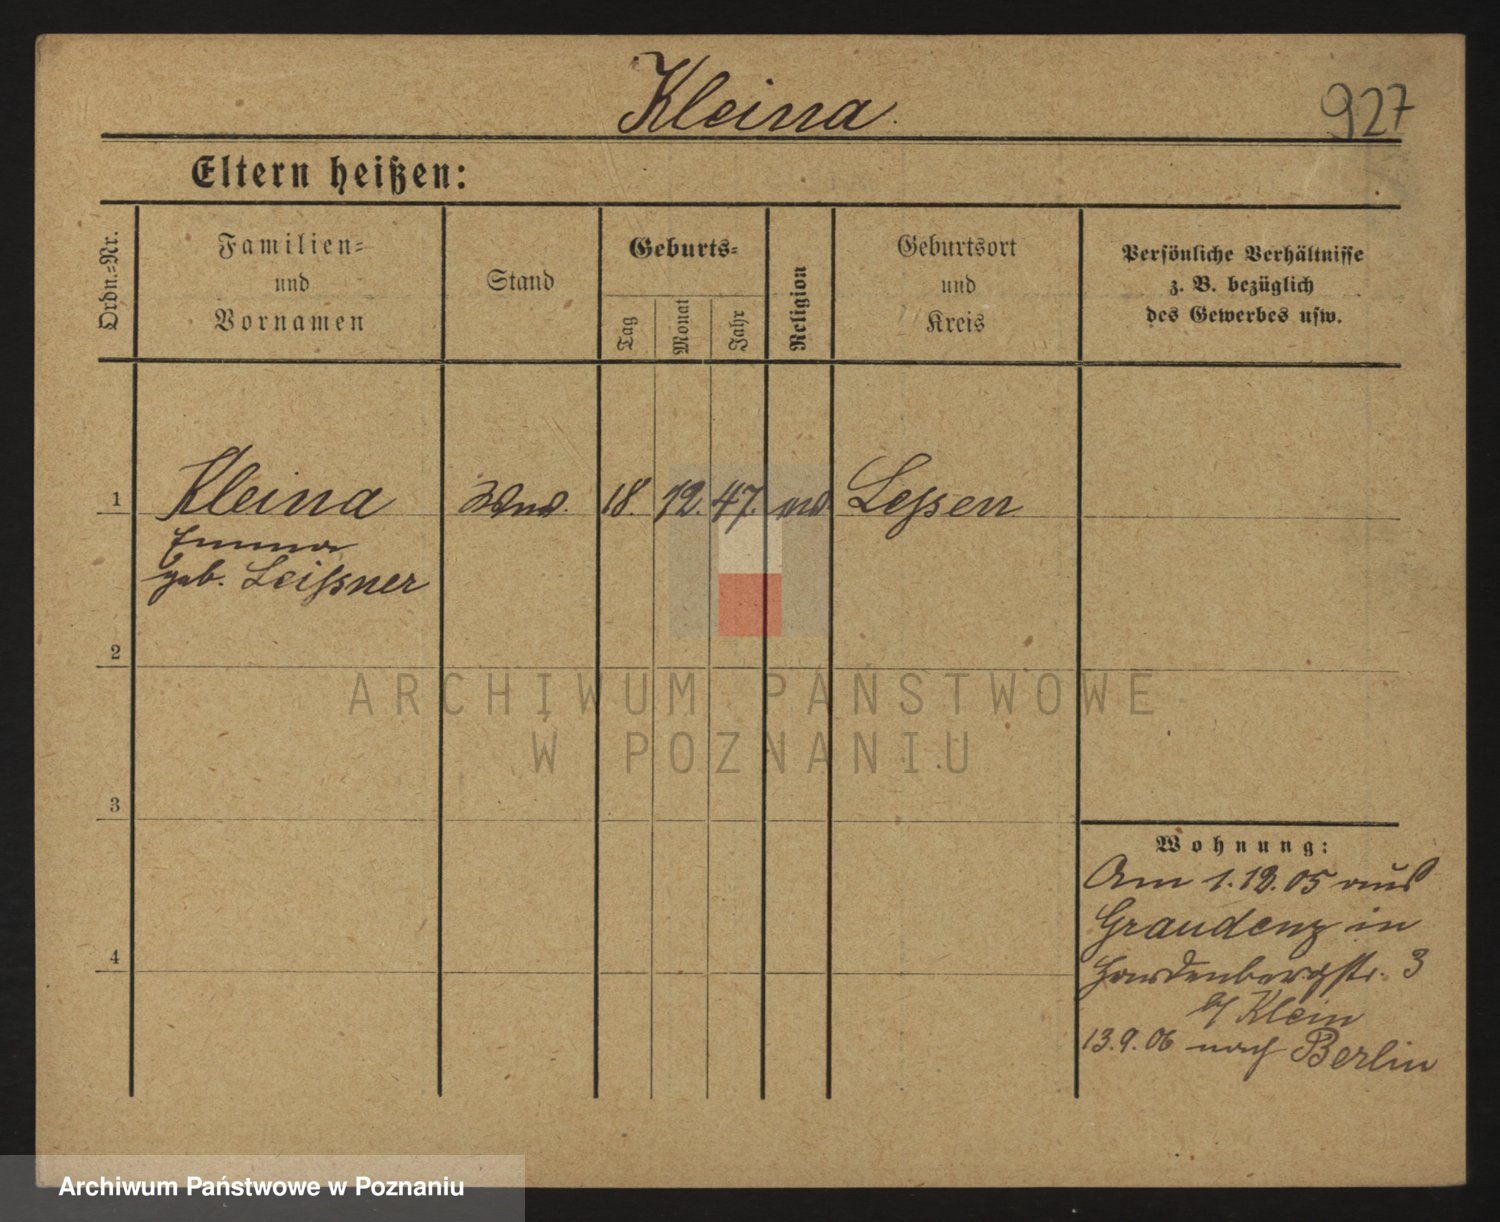 Kleina
927
Eltern heißen:
Ordn.-Nr.
Familien-
und
Vornamen
Stand
Geburts-
Tag
Monat
Jahr
Religion
Geburtsort
und
Kreis
Persönliche Verhältnisse
z. B. bezüglich
des Gewerbes usw.
1 Kleina 18. 12. 47. Lessen
Emma
geb. Leissner
2
ARCHIWUM PAŃSTWOWE
W POZNANIU
3
Wohnung:
Am 1.12.05 aus
Graudenz in
Hardenbergstr. 3
b/ Klein
13.9.06 nach Berlin
4
Archiwum Państwowe w Poznaniu